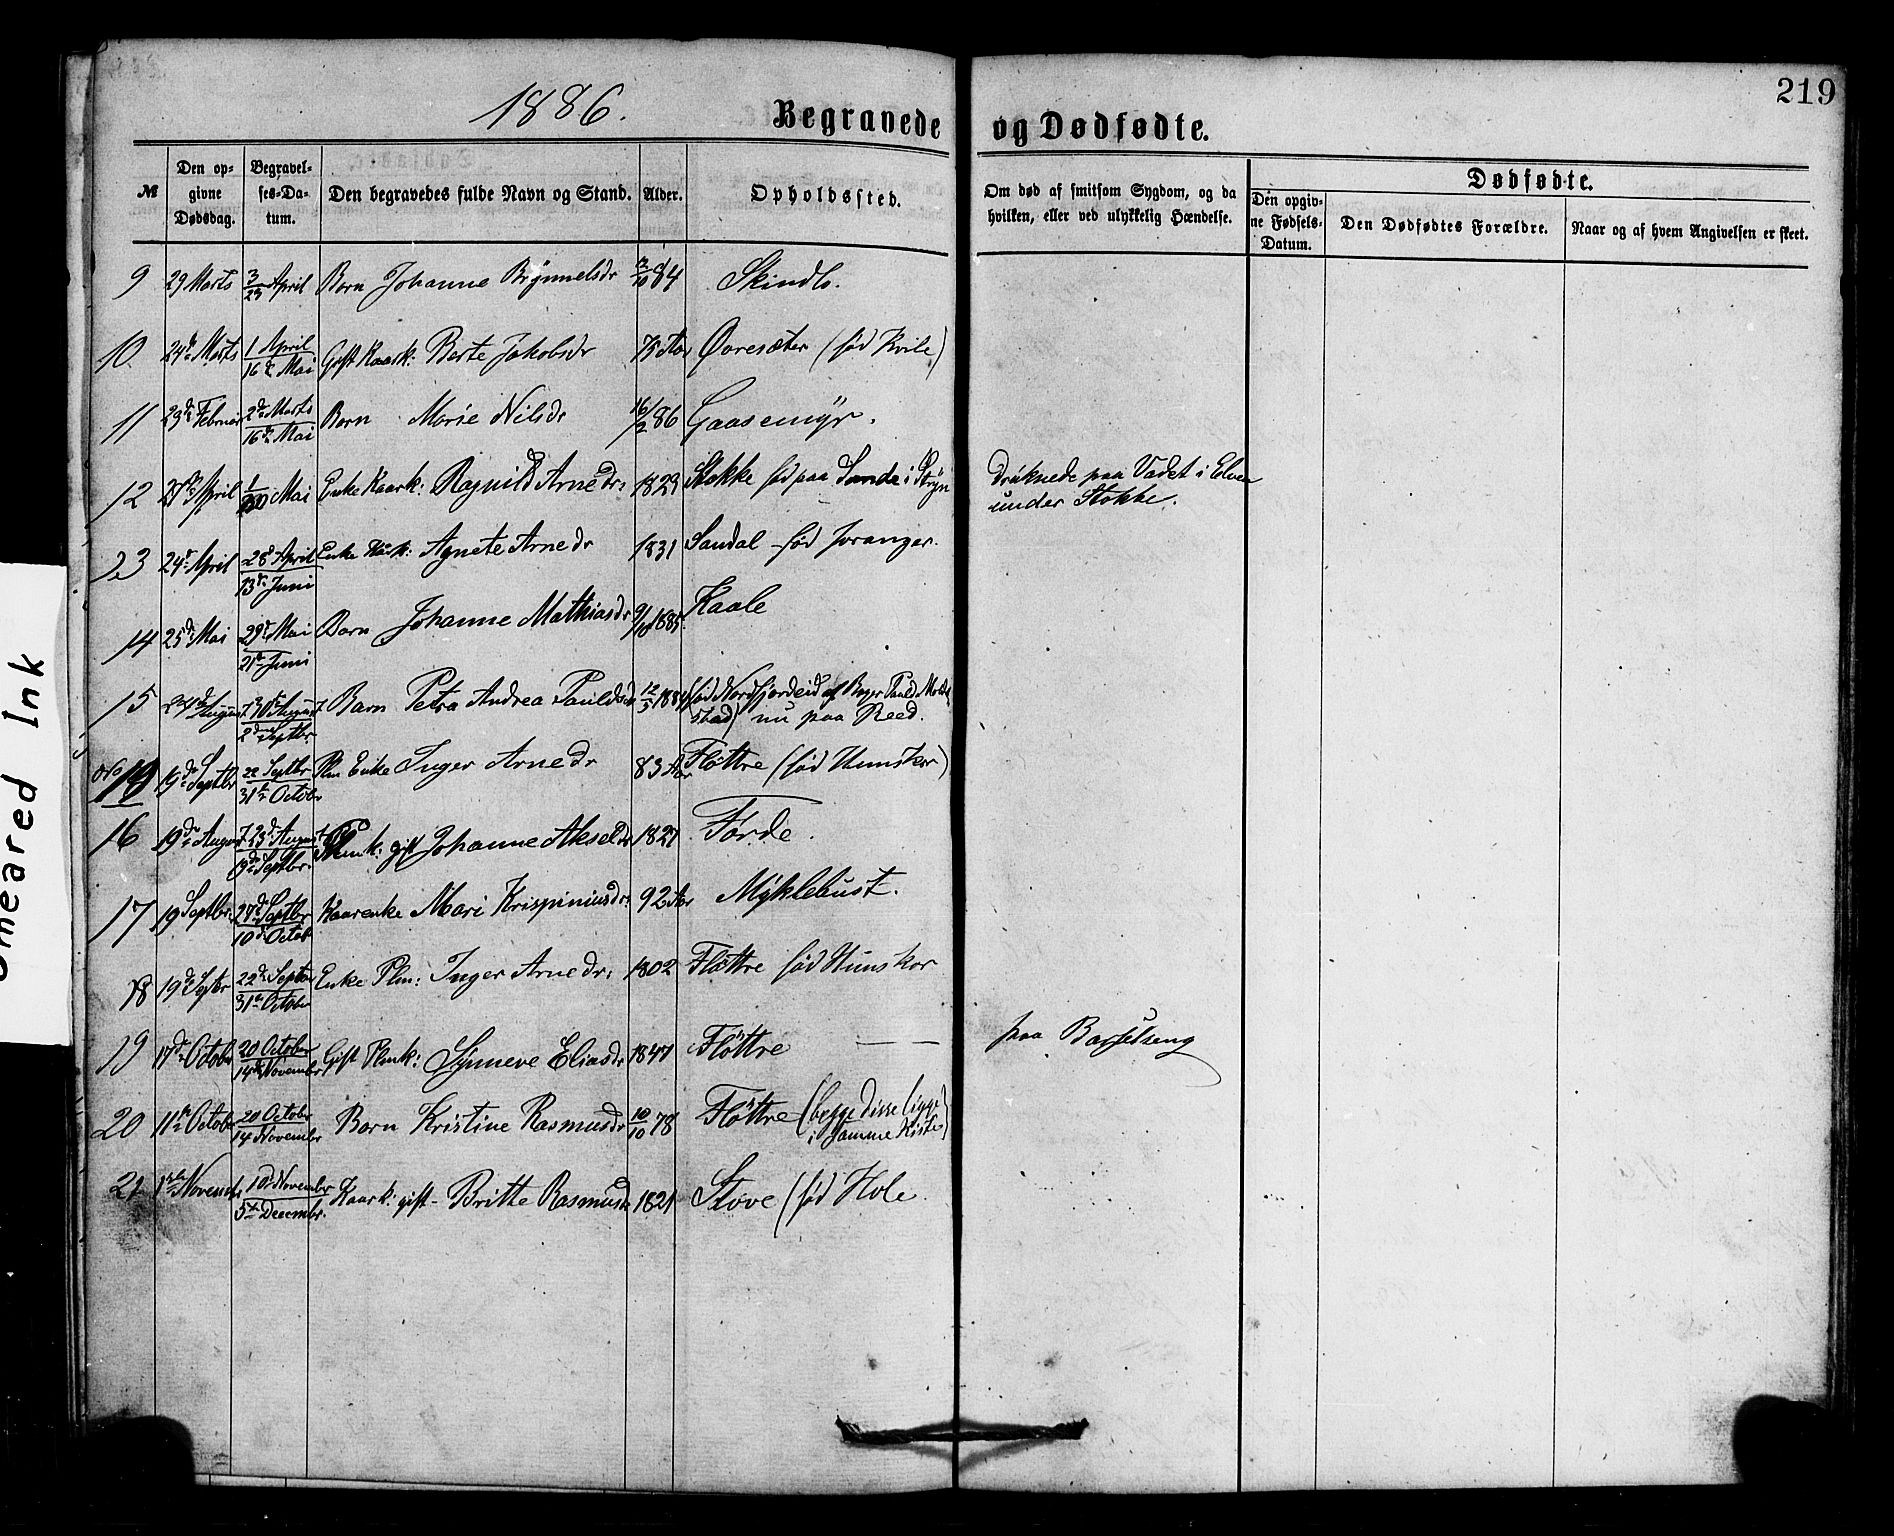 219
1886.
Begravede og Dødfødte.
№
Den opgivne Dødsdag.
Begravelses-Datum.
Den begravedes fulde Navn og Stand.
Alder.
Opholdssted.
Om død af smitsom Sygdom, og da hvilken, eller ved ulykkelig Hændelse.
Dødfødte.
Den opgivne Fødsels-Datum.
Den Dødfødtes Forældre.
Naar og af hvem Angivelsen er skeet.
9 29 Marts 3/23 April Barn Johanne Brynnelsdr 84 Skindlo.
10. 24de Marts 1 April/16de Mai Gift Kaark: Berte Jakobsdr 75 Aar Øvresæter (fød Kvile)
11 23de Februar 2de Marts/16de Mai Barn Marie Nilsdr 16/2 86 Gaasemyr.
12 27de April Mai Enke Kaark: Ragnild Arnedr: 1829 Stokke fød paa Sande i Stryn Druknede paa Vadet i Elven
under Stokke.
13 24de April 28de April/13de Juni Enke Kårk: Agnete Arnedr 1831 Sandal fød Joranger.
14 25de Mai 29de Mai/21de Juni Barn Johanne Mathiasdr 9/10 1885 Kaale
15 24de August 30de August/2den Septbr. Barn Petra Andrea Paulsdr 12/5 188 (fød Nordfjordeid af
stad) nu paa Reed.
19de Septbr 22 Septbr/31te Octobr Plm Enke Inger Arnedr 83 Aar Fløttre (fød Hunskor)
16 19de August 23de August/19de Septbr. Plmk: gift Johanne Akseldr 1827 Førde.
17 19 Septbr. 27de Septbr/10de Octob Kaarenke Mari Krispiniusdr: 92 Aar Myklebust.
18 19de Septbr 22de Septbr/31te Octobr Enke Plm: Inger Arnedr: 1802 Fløttre fød Hunskor
19 17de Octobr 20 October/14de Novembr Gift Plmk: Synneve Eliasdr 1847 Fløttre — — paa Barselseng
20 11te Octobr 20 Octobr/14 Novembr Barn Kristine Rasmusdr 10/10 78 Fløttre (begge disse ligge
i samme Kiste)
21 Novemb 10de Novembr/5te Decembr. Kaark: gift Britte Rasmusdr 1821 Stove (fød Hole.
Smeared Ink